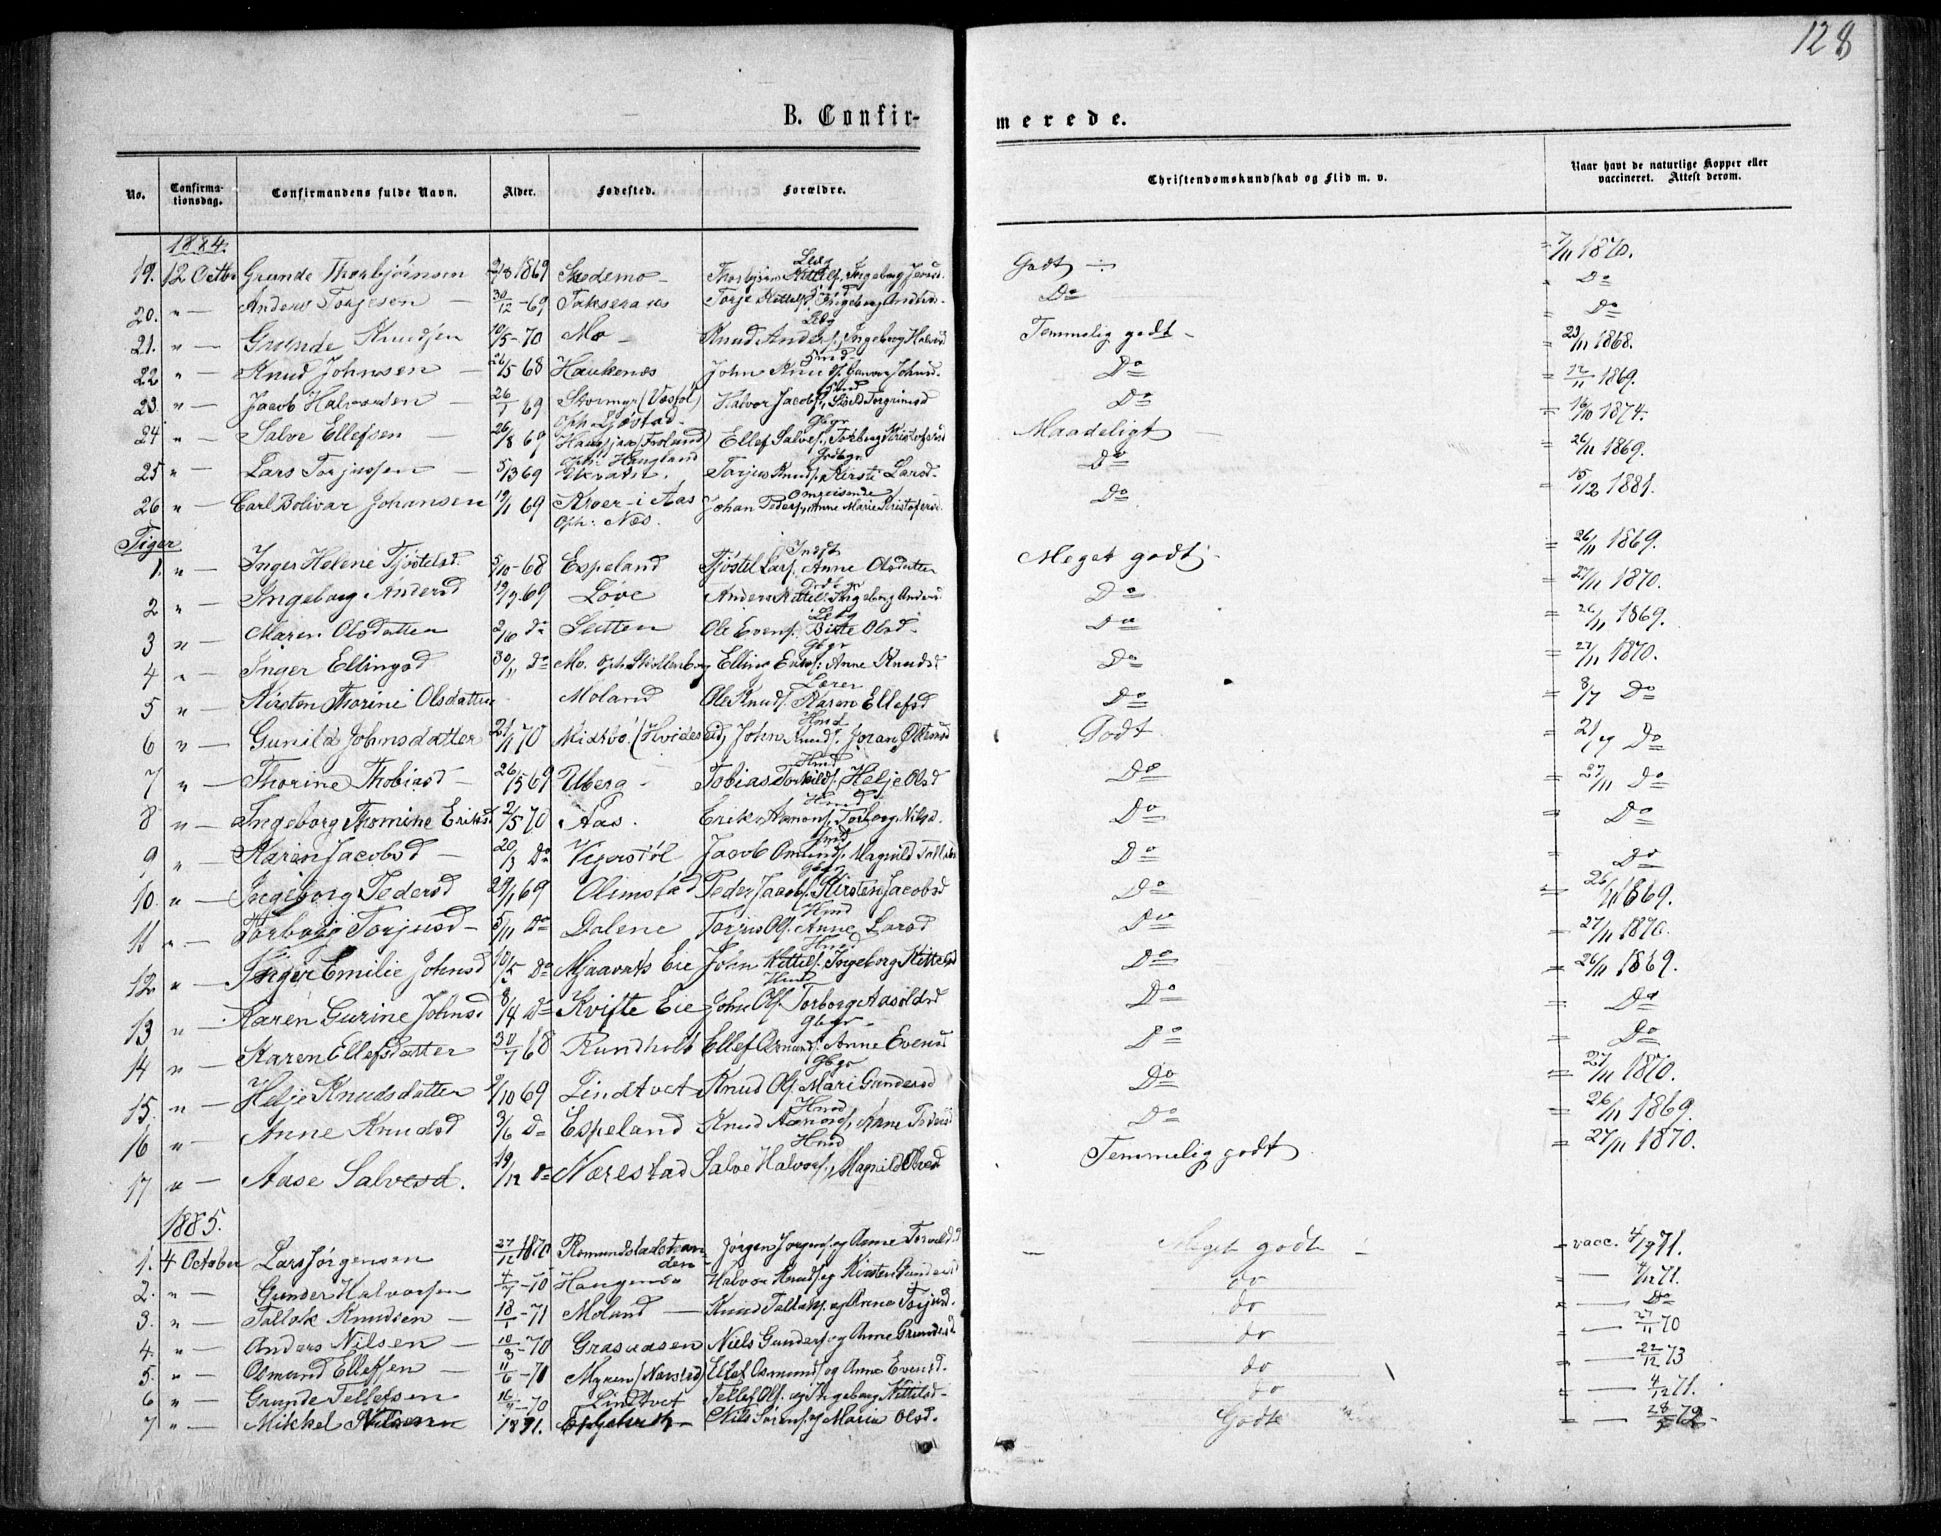 128
B. Confirmerede.
No. Confirmationsdag. Confirmandens fulde Navn. Alder. Fødested. Forældre. Christendomskundskab og Flid m. v. Naar havt de naturlige Kopper eller vaccineret. Attest derom.
1884.
19. 12 Octbr Grunde Thorbjørnsen 1869 Skedemo Godt 7/11 1870.
20. " Anders Torjesen 30/12 - 69 Do Do
21. " Grunde Knudsen 10/5 - 70 Mo Knud Anders., Ingeborg Halvorsd Temmelig godt Do
22 " Knud Johnsen 26/5 68 Haukenæs Do 23/11 1868.
23. " Jacob Halvorsen 26/1 69 Halvor Jacobs., Do 12/11 1869.
24 " Salve Ellefsen 26/8 69 Ellef Salves., Torborg Maadeligt 16/10 1874.
25 " Lars Torjussen 5/3 69 Torjus Knuds., Kirsti Larsd. Do 26/11 1869.
26 " Carl Bolivar Johansen 19/1 69 Kroer i Aas Oph: Næs. Omreisende Johan Peders., Anne Marie Kristofersd. Do 15/12 1881.
Piger
1. " Inger Helene Tjøstelsd. 5/10 - 68 Espeland Tjøstel Lars., Anne Olsdatter Meget godt 26/11 1869.
2 " Ingeborg Andersd 69 Løve Anders Kittels., Ingeborg Andersd Do 27/11 1870.
3 " Maren Olsdatter Do Ole Evens. Birte Olsd. Do 26/11 1869.
4 " Inger Ellingsd 30/11 Do Mo. Anne Knudsd Do 27/11 1870.
5 " Kirsten Thorine Olsdatter Moland Lærer Ole Knuds. Karen Ellefsd Do 8/7 Do
6 " Gunild Johnsdatter 70 John Knuds. Godt Do
7 " Thorine Thobiasd 26/5 69 Ulberg Hmd Tobias Torkilds., Helje Olsd Do 27/11 Do
8 " Ingeborg Thomine Eriksd 2/5 70 Aas. Hmd Erik Aanons., Torborg Nilsd. Do Do
9 " Karen Jacobsd 20/3 Do Vegerstøl Jacob Omunds., Magnild Do Do
10. " Ingeborg Pedersd 29/1 69 Olimstad Gbgr Peder Jacobs. Kirsten Jacobsd Do 26/11 1869.
11 " Torborg Torjusd 5/11 Do Dalene Hmd Torjus Ols. Anne Larsd Do 27/11 1870.
12 " Inger Emilie Johnsd 10/5 Do Mjaavatn Eie Hmd John Kittels. Ingeborg Kittelsd Do 26/11 1869.
13 " Karen Gurine Johnsd 8/4 Do Kvifte Eie Hmd John Ols. Torborg Aasoldsd Do Do
14 " Karen Ellefsdatter 30/7 68 Rundholt Gbgr Ellef Osmunds. Anne Evensd Do Do
15. " Helje Knudsdatter 9/10 69 Lindtvet Gbgr Knud Ols. Mari Gundersd Do 27/11 1870.
16 " Anne Knudsd 3/6 Do Espeland Hmd Knud Aanons., Anne Do 26/11 1869.
17 " Aase Salvesd. 19/12 Do Nærestad Hmd Salve Halvors., Magnild Temmelig godt 27/11 1870.
1885.
1. 4 October Lars Jørgensen 27/12 1870 Romundstadstranden Jørgen Jørgens. og Anne Meget godt vacc. 4/9 71.
2. " Gunder Halvorsen 4/7 - 70 Haugenes Halvor Knuds. og Kirsten Gundersd do 4/12 71.
3. " Tallak Knudsen 18/1 - 71 Moland Knud Tallaks. og Anne Torjusd. do Do
4. " Anders Nilsen 10/3 - 70 Grasaasen Niels Gunders. og Anne Grundesd do 27/11 70
5. " Osmund Ellefsen 11/6 - 70 Myren (Nærstad) Ellef Osmunds. og Anne Evensd. do 22/12 73
6 " Grunde Tellefsen - 70 Lindtvet Tellef Ols. og Ingeborg Kittelsd do 4/12 71.
7 " Mikkel Nilsen 1871. Nils Sørens. og Maria Olsd. Godt 28/5 72